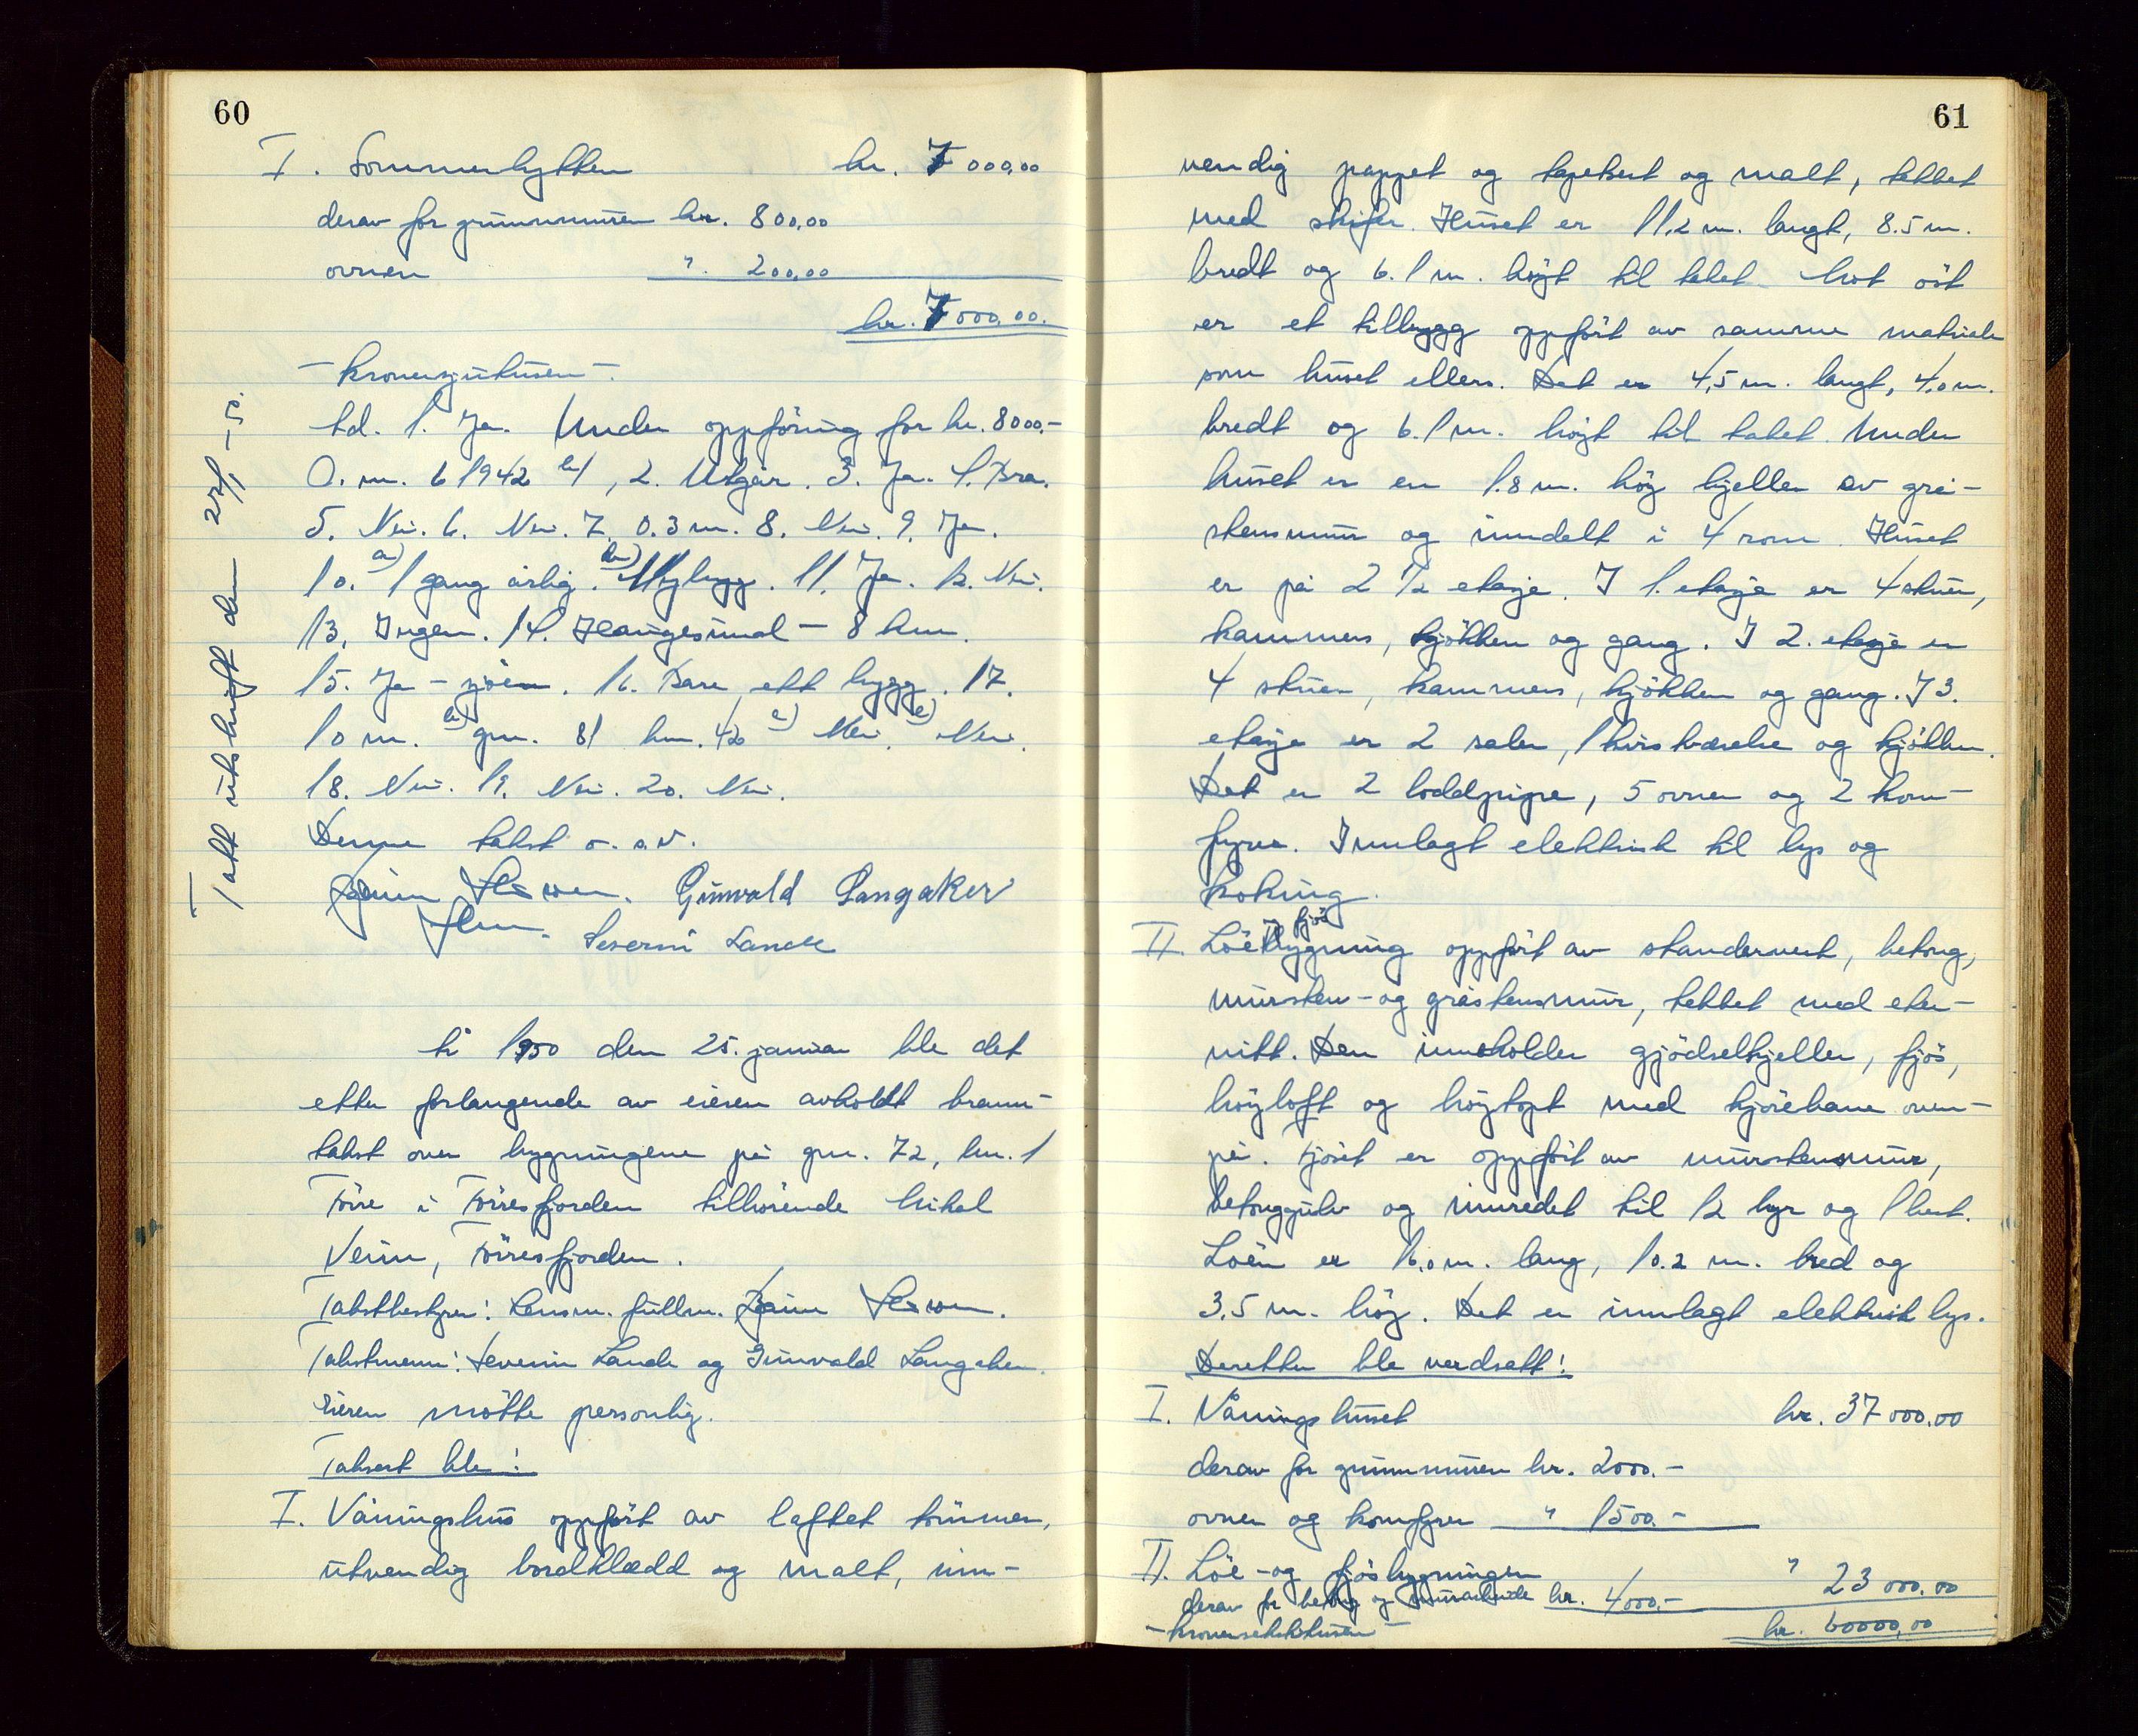 60
I. Sommerhytten kr. 7000,00
derav for grunnmuren kr. 800,00
ovnen " 200,00
kr. 7000,00.
- kronersjutusen -.
td. 1. Ja. Under oppföring for kr. 8000.-
O. m. 6 1942 b/, 2. Utgår. 3. Ja. 4. Bra.
5. Nei. 6. Nei. 7. 0.3 m. 8. Nei. 9. Ja.
10. a) 1 gang årlig. b) Nybygg. 11. Ja. 12. Nei.
13. Ingen. 14. Haugesund - 8 km.
15. Ja - sjöen. 16. Bare ett bygg. 17.
10 m. b) gnr. 81 bnr. 42 c) Nei. e) Nei.
18. Nei. 19. Nei. 20. Nei.
Denne takst o. s. v.
Gunvald Langaker
Severin Lande
Tatt utskrift den 27/1 - 50.
År 1950 den 25. januar ble det
etter forlangende av eieren avholdt brann-
takst over bygningene på gnr. 72, bnr. 1
Förre i Förresfjorden tilhörende Mikal
Veim, Förresfjorden.
Takstbestyrer: Lensm. fullm.
Takstmenn: Severin Lande og Gunvald Langaker.
Eieren mötte personlig.
Taksert ble:
I. Våningshus oppfört av laftet tömmer,
utvendig bordklædd og malt, inn-
61
vendig pappet og tapetsert og malt, tekket
med skifer. Huset er 11,2 m. langt, 8.5 m.
bredt og 6.1 m. höyt til taket. Mot öst
er et tilbygg oppfört av samme matriale
som huset ellers. Det er 4,5 m. langt, 4,0 m.
bredt og 6.1 m. höyt til taket. Under
huset er en 1.8 m. höy kjeller av grå-
stensmur og inndelt i 4 rom. Huset
er på 2 1/2 etasje. I 1. etasje er 4 stuer,
kammers, kjökken og gang. I 2. etasje er
4 stuer, kammers, kjökken og gang. I 3.
etasje er 2 saler, 1 kvistværelse og kjökken.
Det er 2 loddpipe, 5 ovner og 2 kom-
fyrer. Innlagt elektrisk til lys og
koking.
II. Löe og fjös bygning oppfört av standerverk, betong,
mursten- og gråstensmur, tekket med eter-
nitt. Den inneholder gjödselkjeller, fjös,
höyloft og höytopt med kjörebane oven-
på. Fjöset er oppfört av murstensmur,
betonggulv og innredet til 12 kyr og 1 hest.
Löen er 16,0 m. lang, 10.2 m. bred og
3.5 m. höy. Det er innlagt elektrisk lys.
Deretter ble verdsatt:
I. Våningshuset kr. 37000.00
derav for grunnmuren kr. 2000.-
ovner og komfyrer " 1500.-
II. Löe- og fjösbygningen " 23000.00
derav for betong og murarbeide kr. 4000.-
- kronersekstitusen - kr. 60000,00